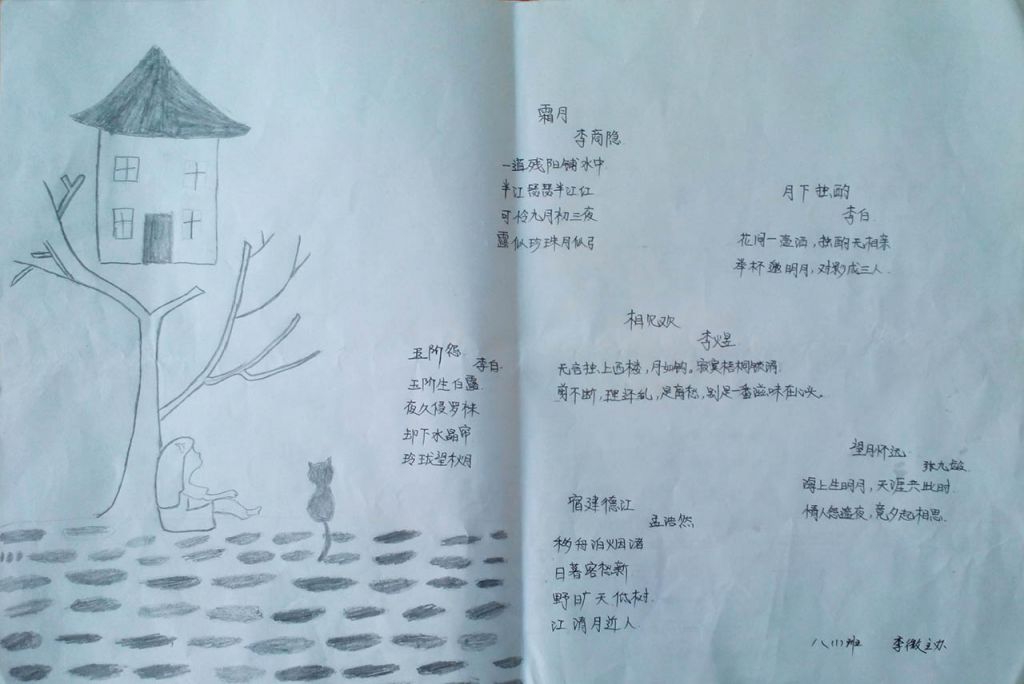 霜月
李商隐
一道残阳铺水中
半江瑟瑟半江红
可怜九月初三夜
露似珍珠月似弓
月下独酌
李白
花间一壶酒，独酌无相亲
举杯邀明月，对影成三人.
相见欢
李煜
无言独上西楼，月如钩。寂寞梧桐锁清
剪不断，理还乱，是离愁，别是一番滋味在心头。
玉阶怨
李白.
玉阶生白露
夜久侵罗袜
却下水晶帘
玲珑望秋月
望月怀远
张九龄
海上生明月，天涯共此时.
情人怨遥夜，竟夕起相思.
宿建德江
孟浩然
移舟泊烟渚
日暮客愁新
野旷天低树.
江清月近人
八(1)班 李微主办